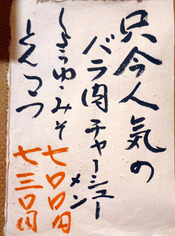 只今人気の
バラ肉チャーシューメン
しょうゆ・みそ 七〇〇円
とんこつ 七三〇円